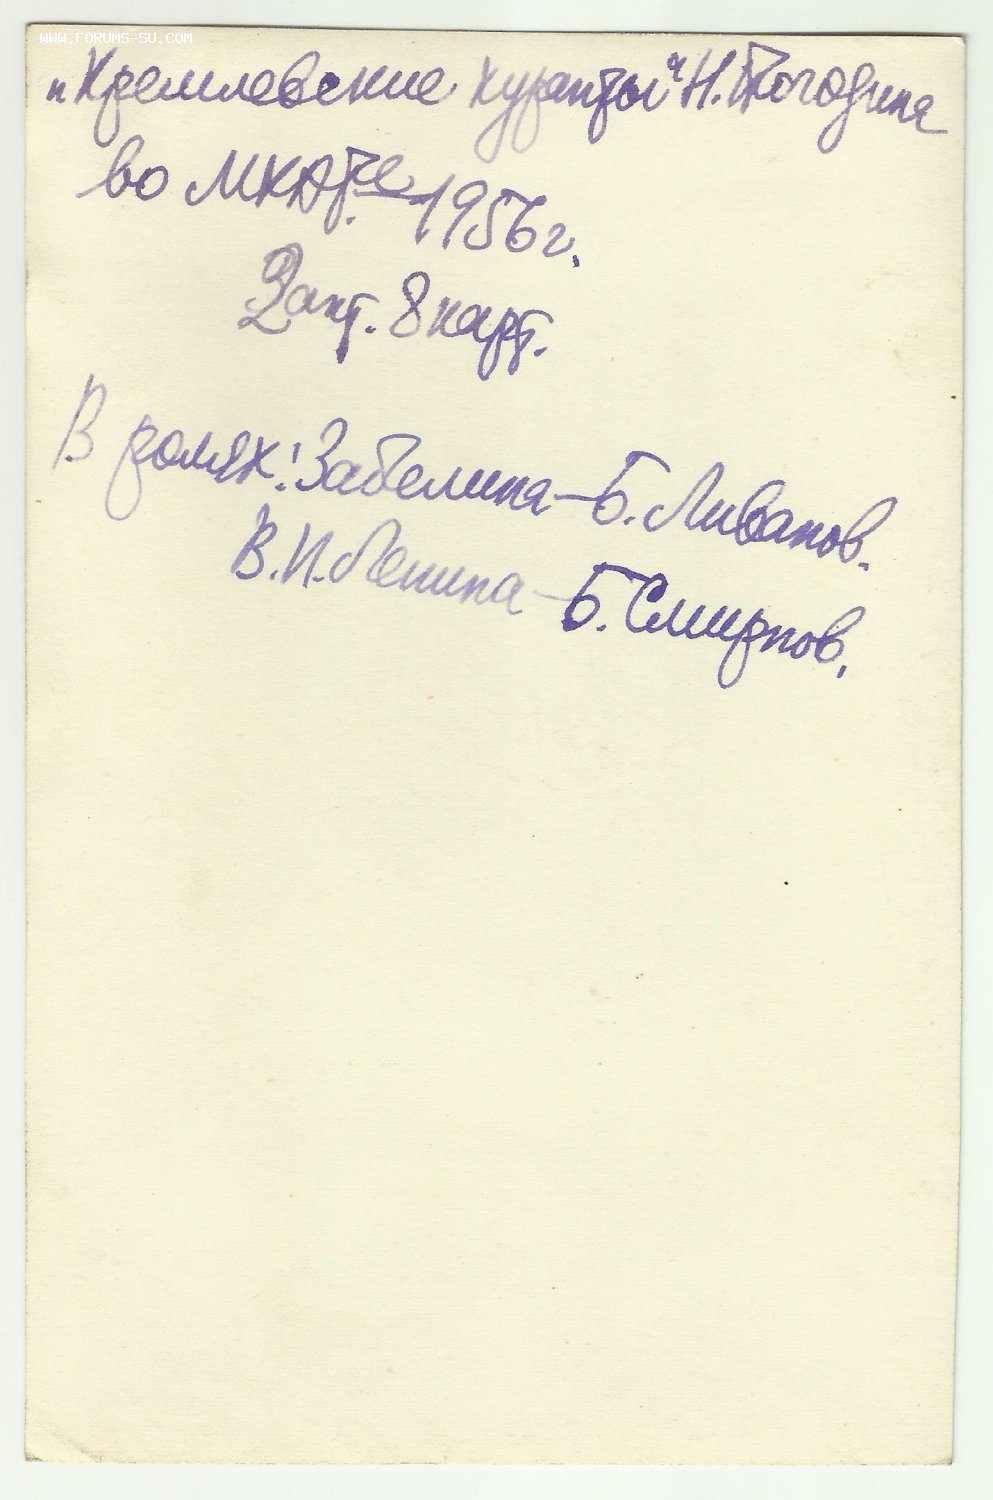 WWW.FORUMS-SU.COM
„Кремлевские куранты" Н. Погодина
во МХАТ.е 1956 г.
2 акт. 8 карт.
В ролях: Забелина – Б. Ливанов.
В. И. Ленина – Б. Смирнов.